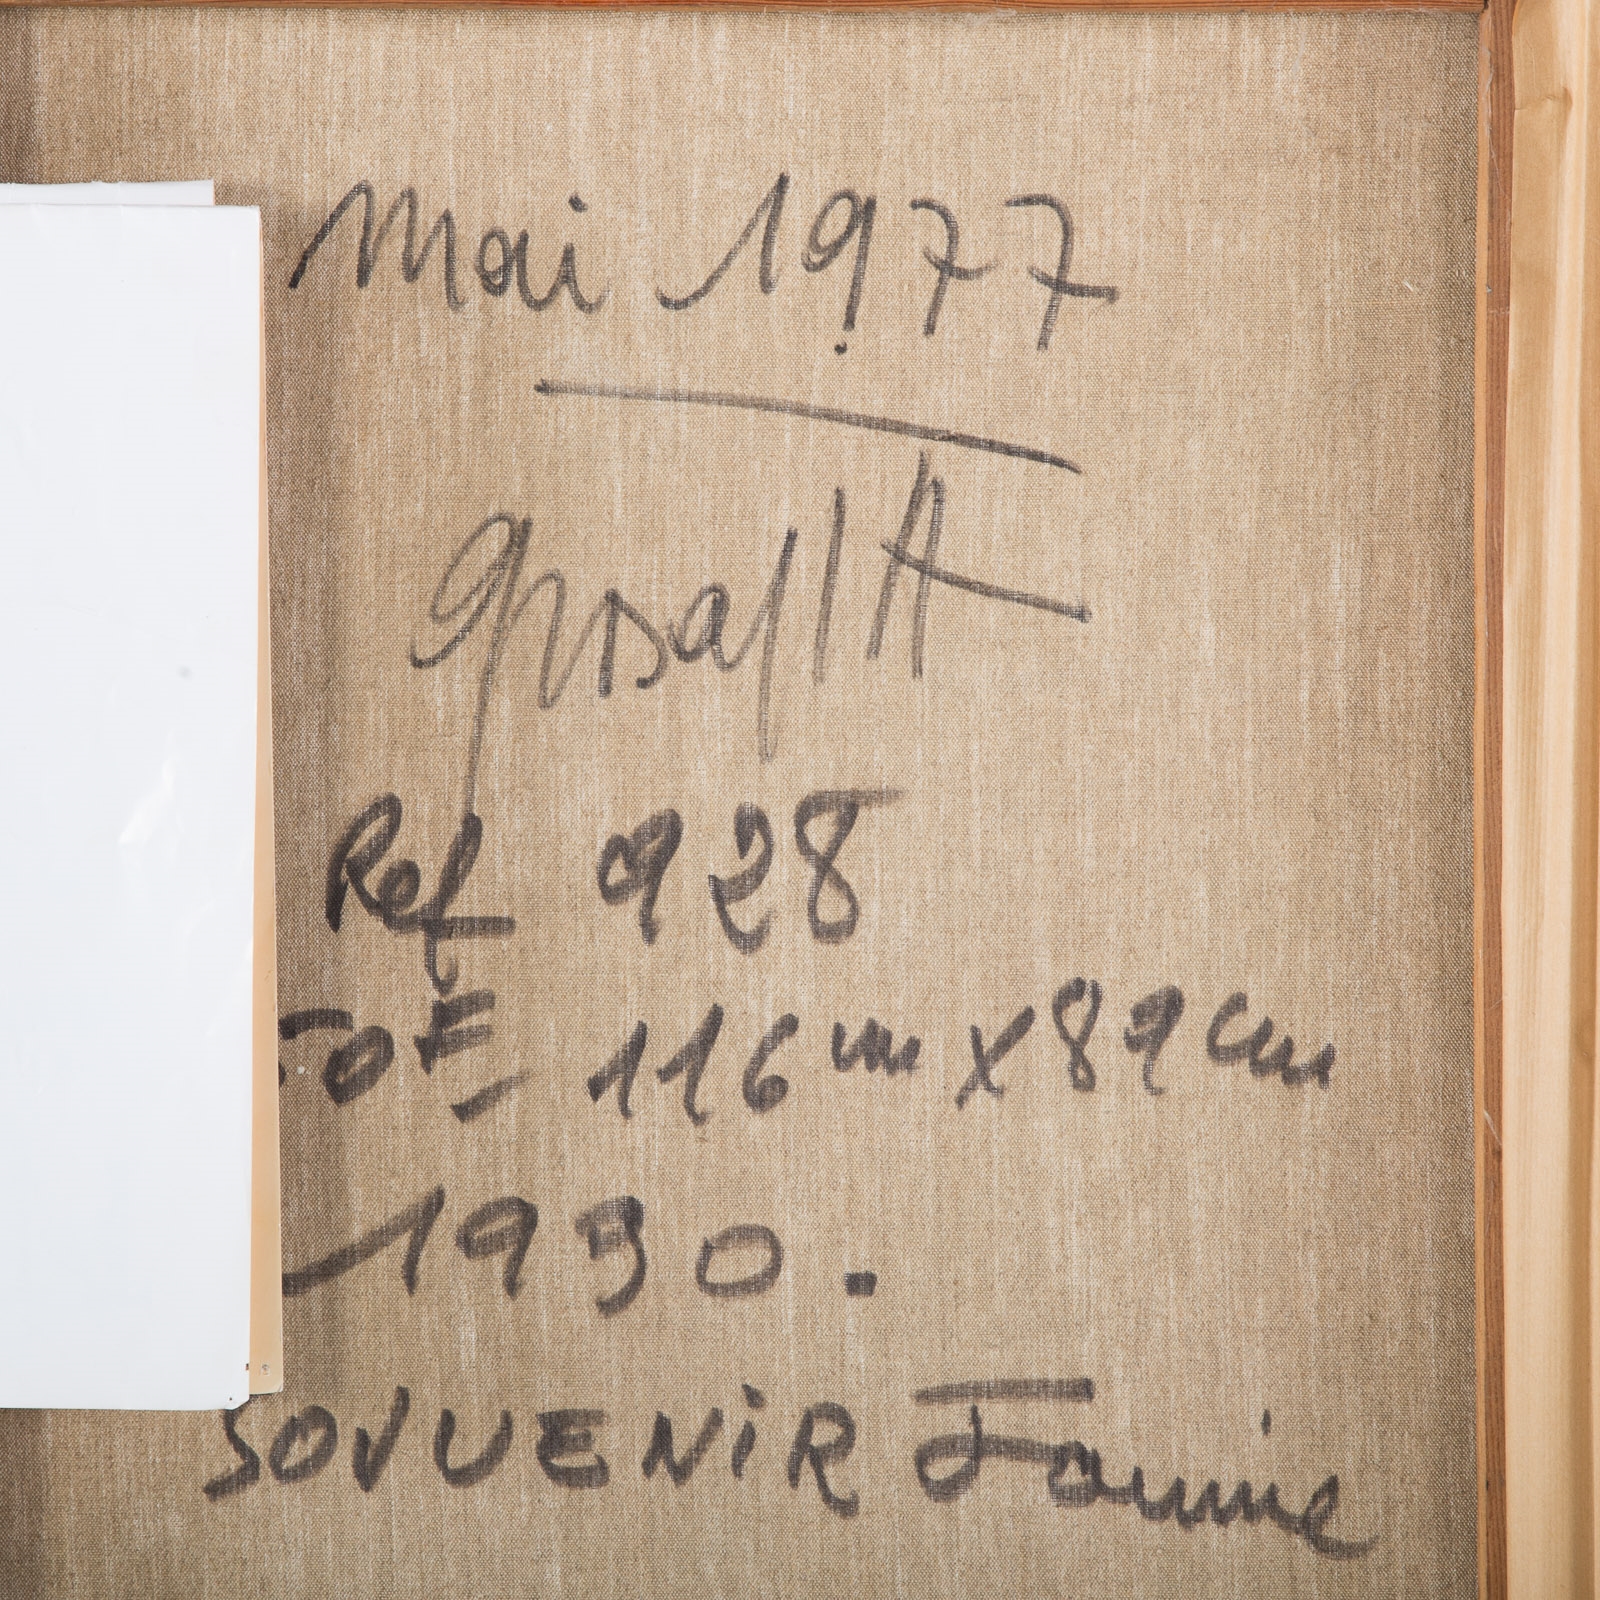 Mai 1977
GrisallA
Ref 928
50F 116 cm x 89 cm
1930.
SOUVENIR